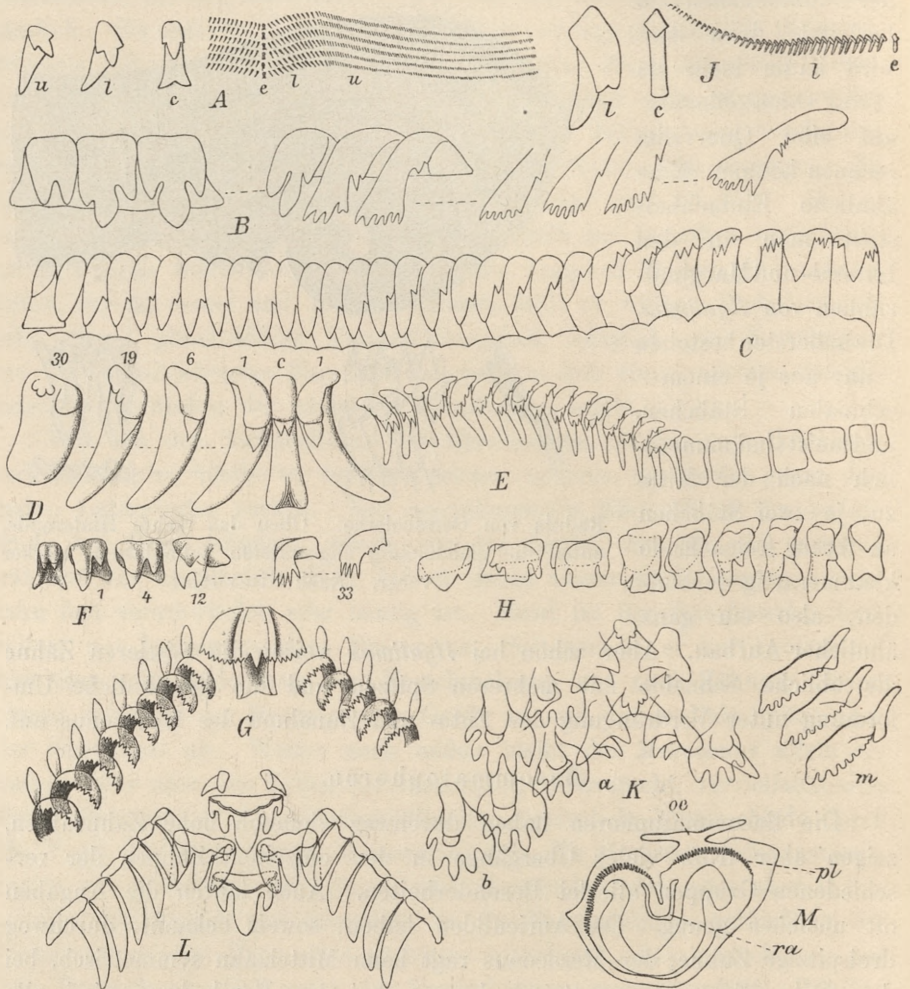 u l c A e l u l c J l e
B
C
30 19 6 1 c 1
D E
F 1 4 12 33 H
G
a K m
oe
b pl
M
L ra